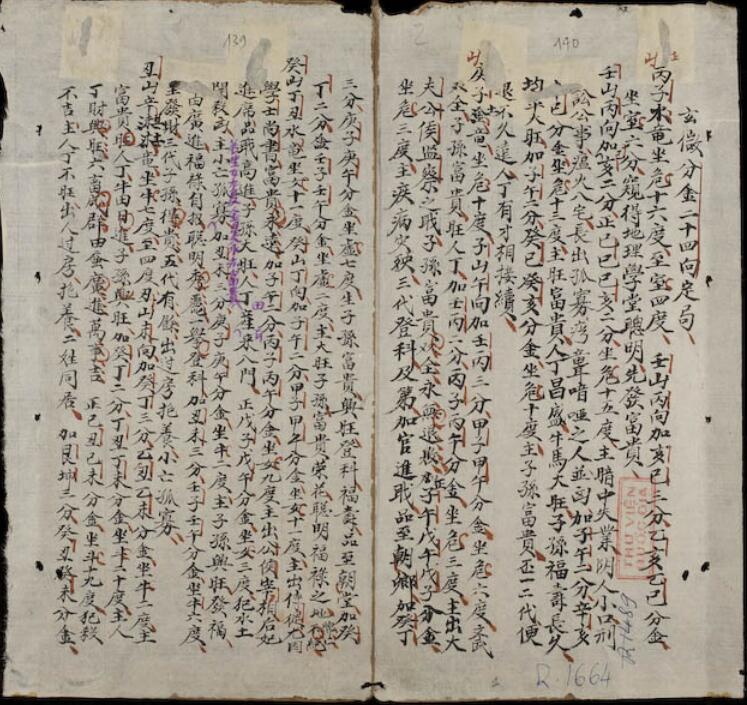 139
140
玄微分金二十四向定句
丙子水竜坐危十六度至室四度 壬山丙向加亥巳三分乙亥乙巳分金
坐室六分窺得地理學堂聰明先發富貴
壬山丙向加亥二分正巳己巳亥二分坐危十五度主暗中失業閉人小口刑
訟公事瘟火八宅長出孤寡聾瘖啞之人並凶加子午二分辛亥
巳分金坐危十三度主旺富貴人丁昌盛牛馬大旺子孫福壽長久
均平人旺加子午二分癸巳癸亥分金坐危十度主子孫富貴丕一二代便
退不久遠人丁有才相接續
庚子金竜坐危十度子山午向加壬丙三分甲子甲午分金坐危六度文武
双全子孫富貴旺人丁加壬丙二分丙子丙午分金坐危三度主出大
夫公侯監察之職子孫富貴双全永無退敗加子午戊午戊子分金
坐危三度主疾病火殃三代登科及第加官進職品至朝卿加癸丁
三分庚子庚午分金坐虛七度生子孫富貴興旺登科福壽品至朝堂加癸
丁二分金壬子壬午分金坐虛二度主大旺子孫富貴榮花聰明福祿之地
癸山丁丑水竜坐女十一度癸山丁向加子午二分甲子甲午分金坐女十一度主出
學士尚書富貴永遠加子午二分丙子丙午分金坐女九度主出公侯宰相后妃
進席品職高進子孫大旺人丁產來入門 正戊子戊午分金坐女三度犯水土
閉殺主小亡孤寡加丑未三分庚子庚午分金坐牛二度主子孫興旺發福
由廣進福祿自招聰明秀慧登科加丑未三分壬子壬午分金坐牛六度
主發財三代子孫得貴五代有餘出过房抱養小亡孤寡
丑山辛未竜坐牛七度至四度丑山未向加癸丁三分乙丑乙未分金坐牛二度主
富貴旺人丁牛田日進子孫興旺加癸丁二分丁丑丁未分金坐斗二十度主人
丁財興旺六畜成群由蚕廣進萬事吉 正己丑己未分金坐斗十九度犯殺
不吉主人丁不旺出人过房抱養二姓同居 加艮坤三分癸丑癸未分金
THƯ VIỆN
QUỐC GIA
R.1489
R.1664